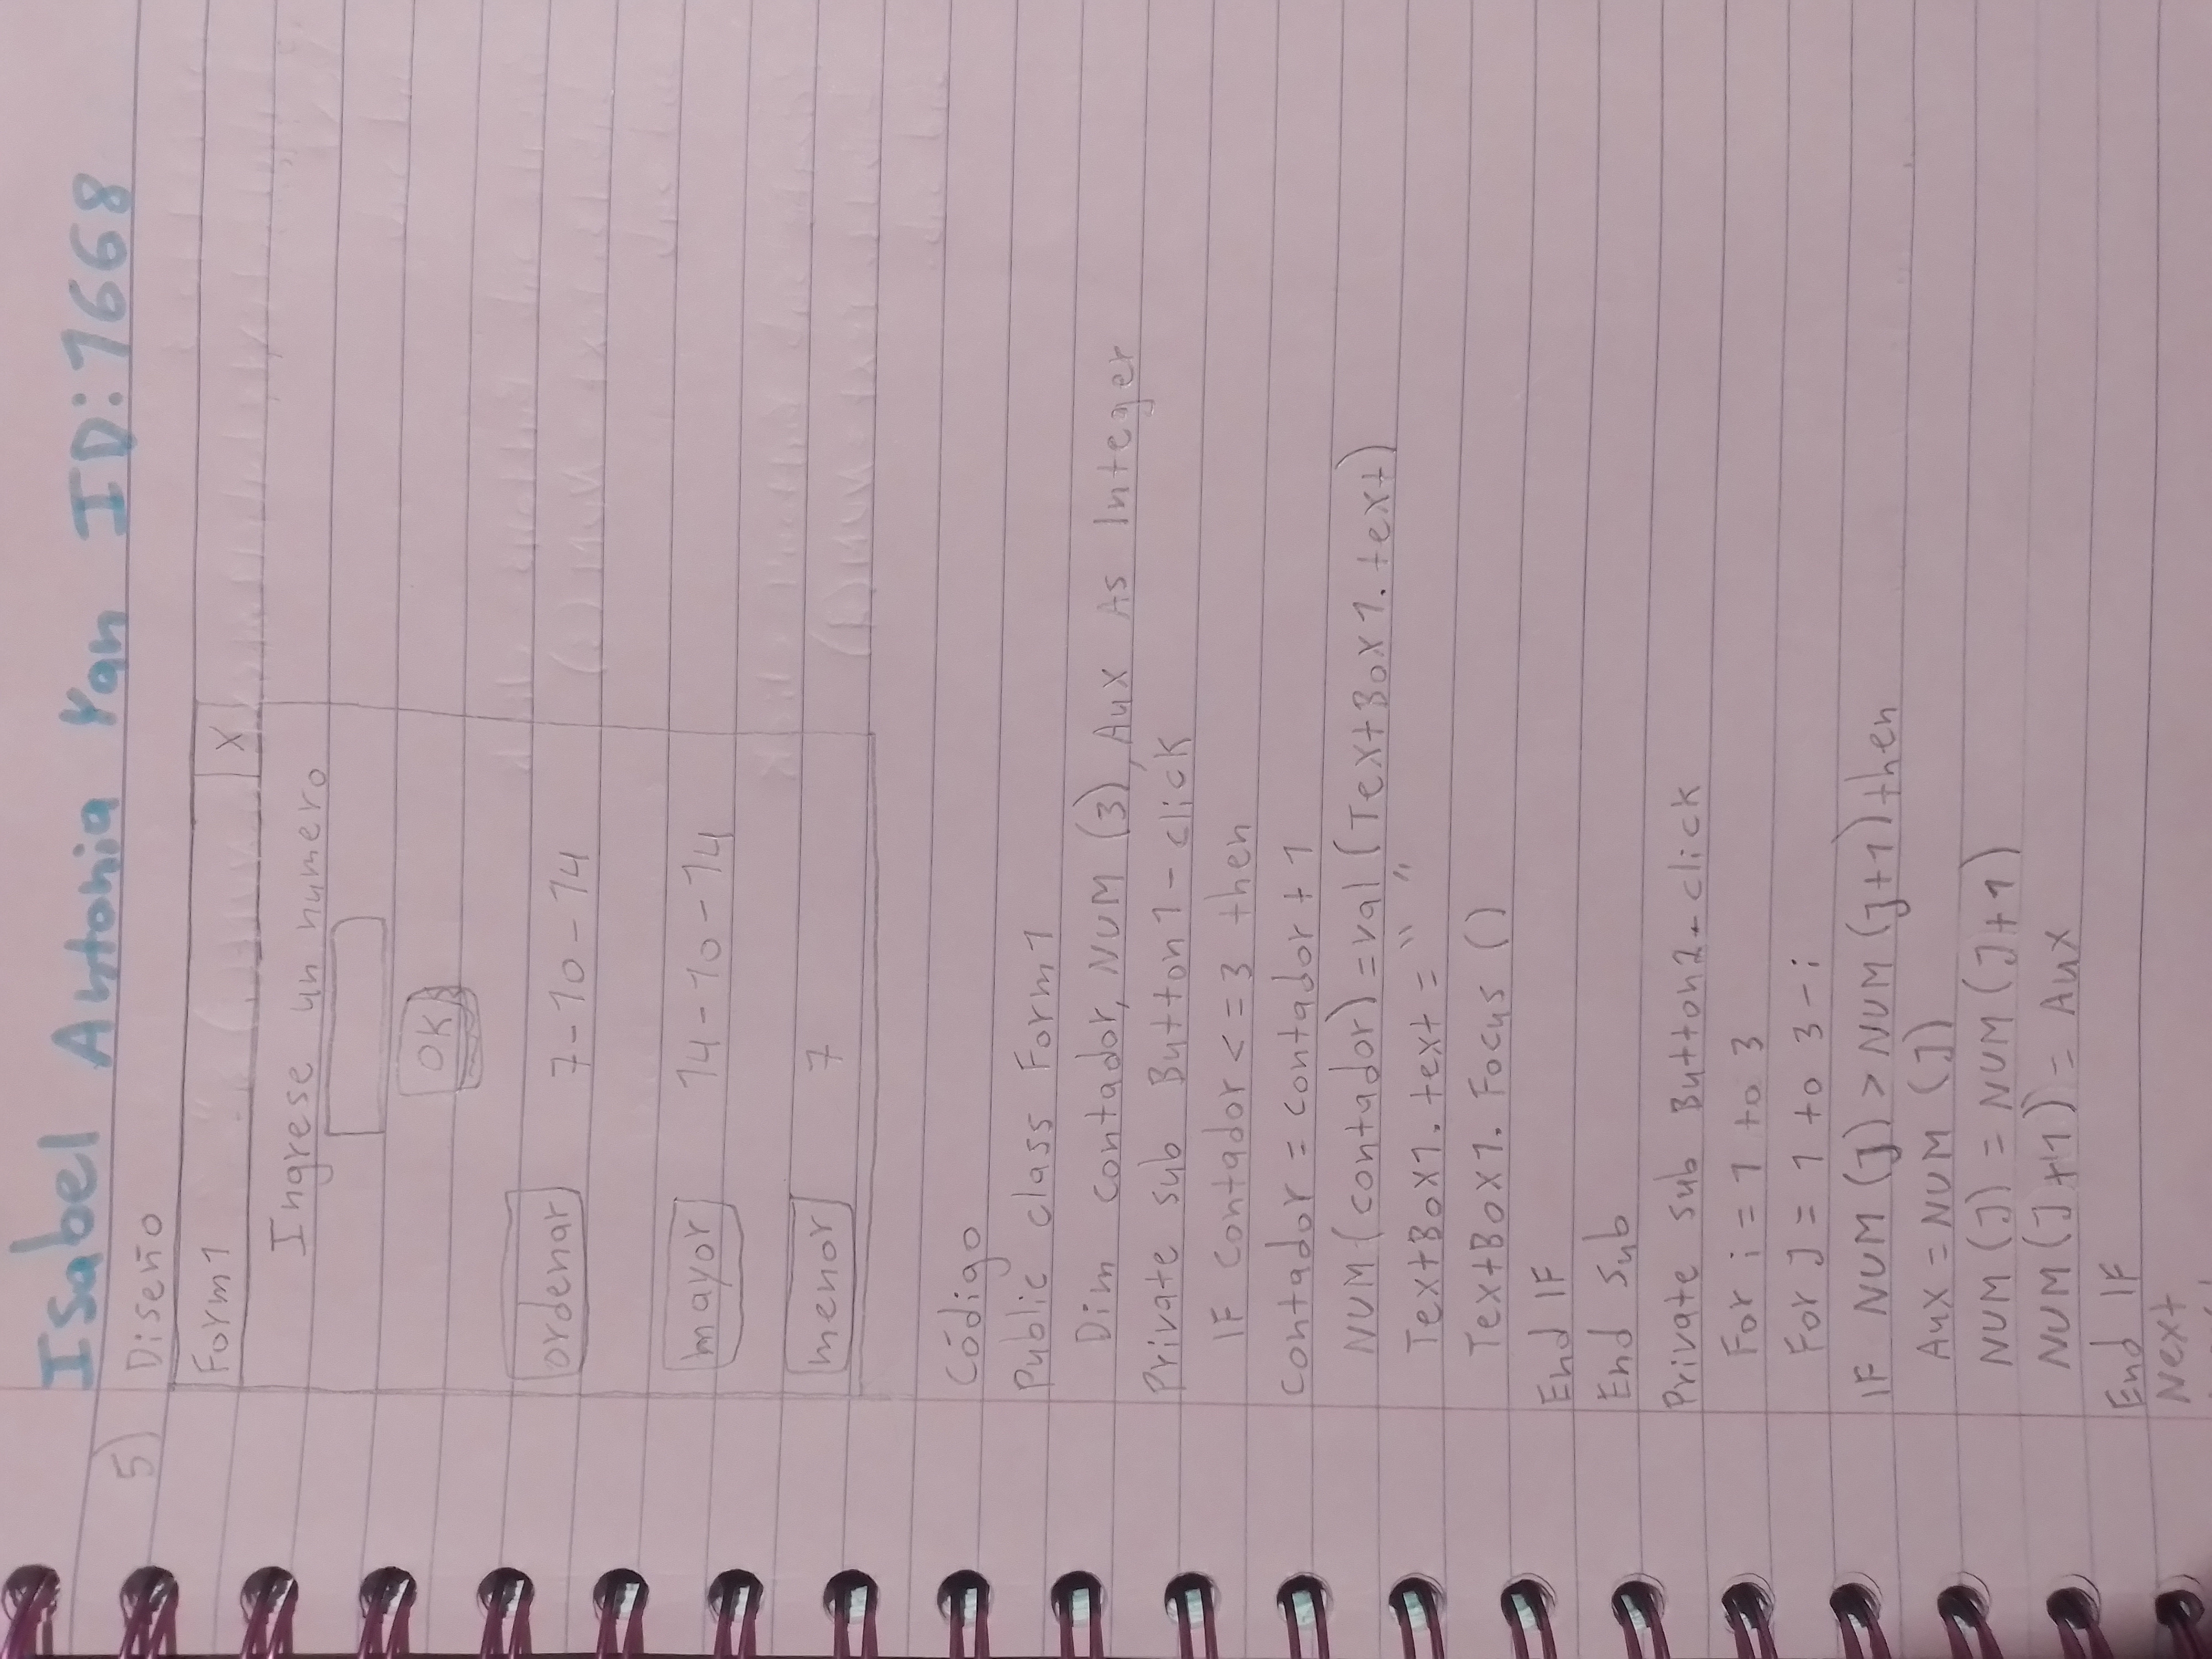 Isabel Antonia Yan ID:1668
5) Diseño
Form1 X
Ingrese un numero
OK
ordenar 7-10-14
mayor 14-10-14
menor 7
Código
Public class Form1
Dim contador, NUM (3), Aux As Integer
Private sub Button1-click
IF contador <= 3 then
contador = contador + 1
NUM (contador) = val (TextBox1.text)
TextBox1.text = " "
TextBox1.Focus ()
End IF
End Sub
Private sub Button2-click
For i = 1 to 3
For J = 1 to 3-i
IF NUM (J) > NUM (J+1) then
Aux = NUM (J)
NUM (J) = NUM (J+1)
NUM (J+1) = Aux
End IF
Next